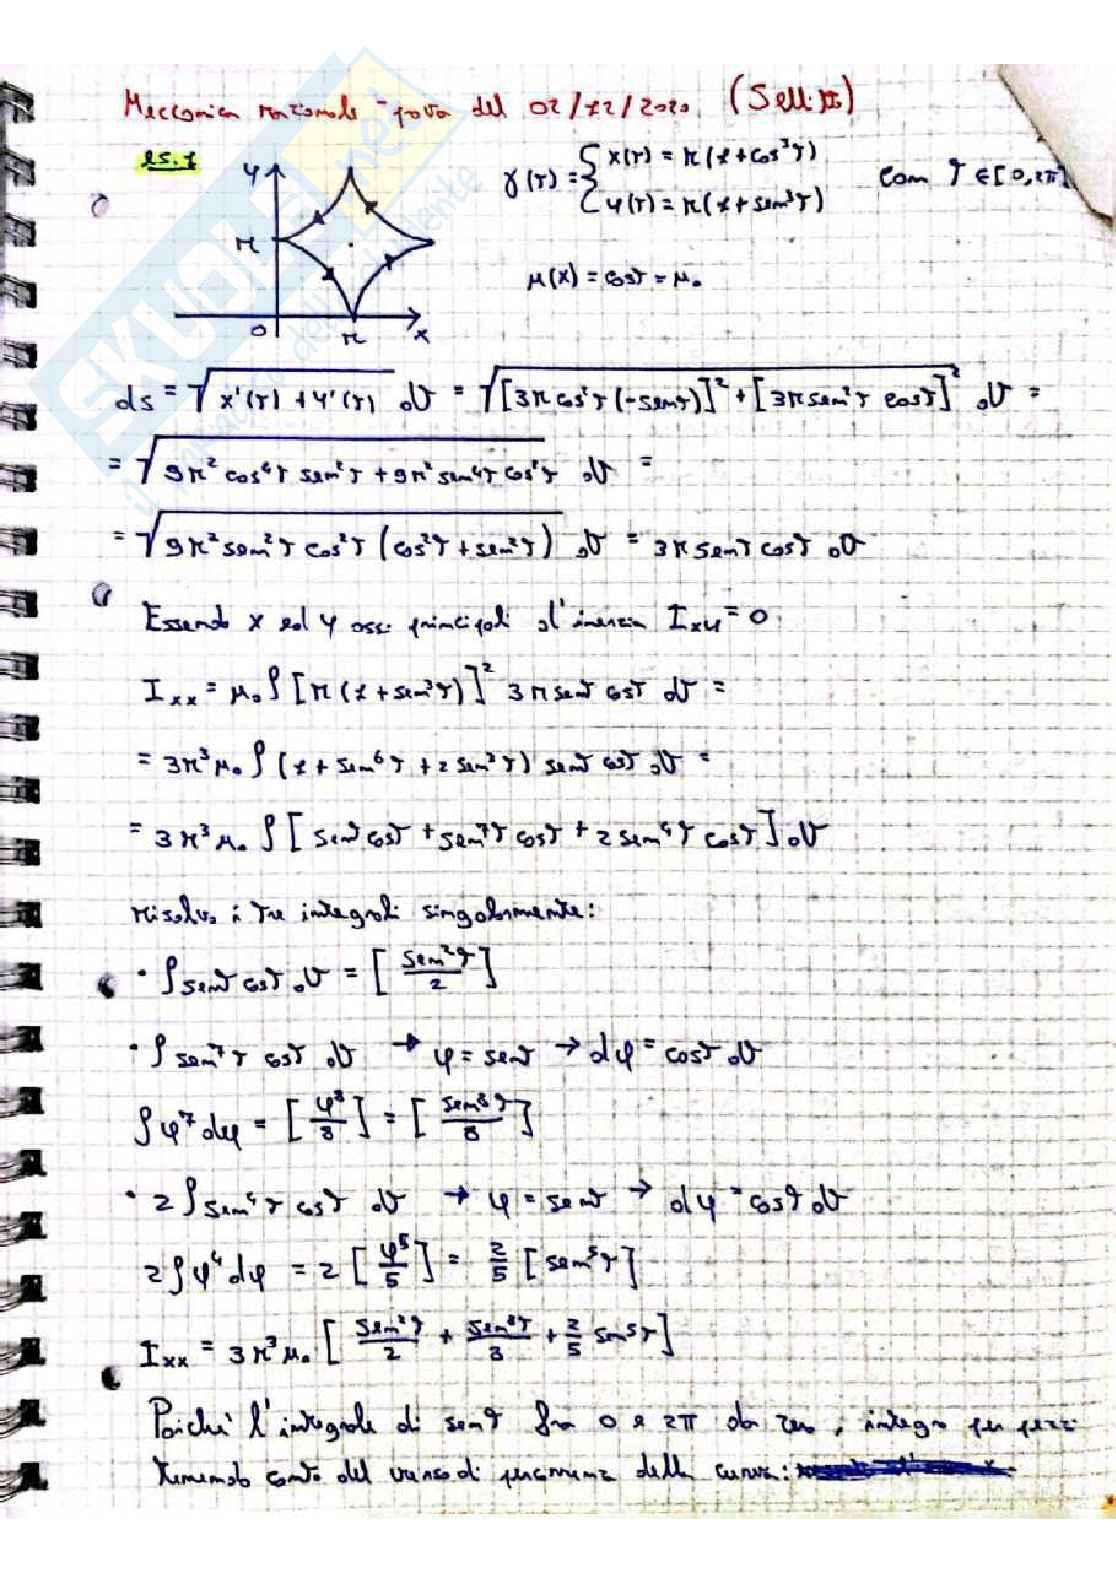 Meccanica razionale - prova del 02/12/2020 (Sellitto)
es. 1
γ(τ) = { x(τ) = r(1+cos³τ)
y(τ) = r(1+sen³τ)
con τ ∈ [0,2π]
y
r
O
r
x
μ(x) = cost = μ₀
ds = √(x'(τ) + y'(τ)) dτ = √([3r cos²τ (-senτ)]² + [3r sen²τ cosτ]²) dτ =
= √(9r² cos⁴τ sen²τ + 9r² sen⁴τ cos²τ) dτ =
= √(9r² sen²τ cos²τ (cos²τ + sen²τ)) dτ = 3r senτ cosτ dτ
Essendo x ed y assi principali d'inerzia Ixy = 0
Ixx = μ₀ ∫ [r(1+sen³τ)]² 3r senτ cosτ dτ =
= 3r³ μ₀ ∫ (1 + sen⁶τ + 2 sen³τ) senτ cosτ dτ =
= 3r³ μ₀ ∫ [senτ cosτ + sen⁷τ cosτ + 2 sen⁴τ cosτ] dτ
risolvo i tre integrali singolarmente:
• ∫ senτ cosτ dτ = [sen²τ/2]
• ∫ sen⁷τ cosτ dτ → φ = senτ → dφ = cosτ dτ
∫ φ⁷ dφ = [φ⁸/8] = [sen⁸τ/8]
• 2∫ sen⁴τ cosτ dτ → φ = senτ → dφ = cosτ dτ
2∫ φ⁴ dφ = 2 [φ⁵/5] = 2/5 [sen⁵τ]
Ixx = 3r³ μ₀ [sen²τ/2 + sen⁸τ/8 + 2/5 sen⁵τ]
Poiché l'integrale di senτ fra 0 e 2π da zero, integro per pezzi
tenendo conto del verso di percorrenza della curva:
SKUOLA.net